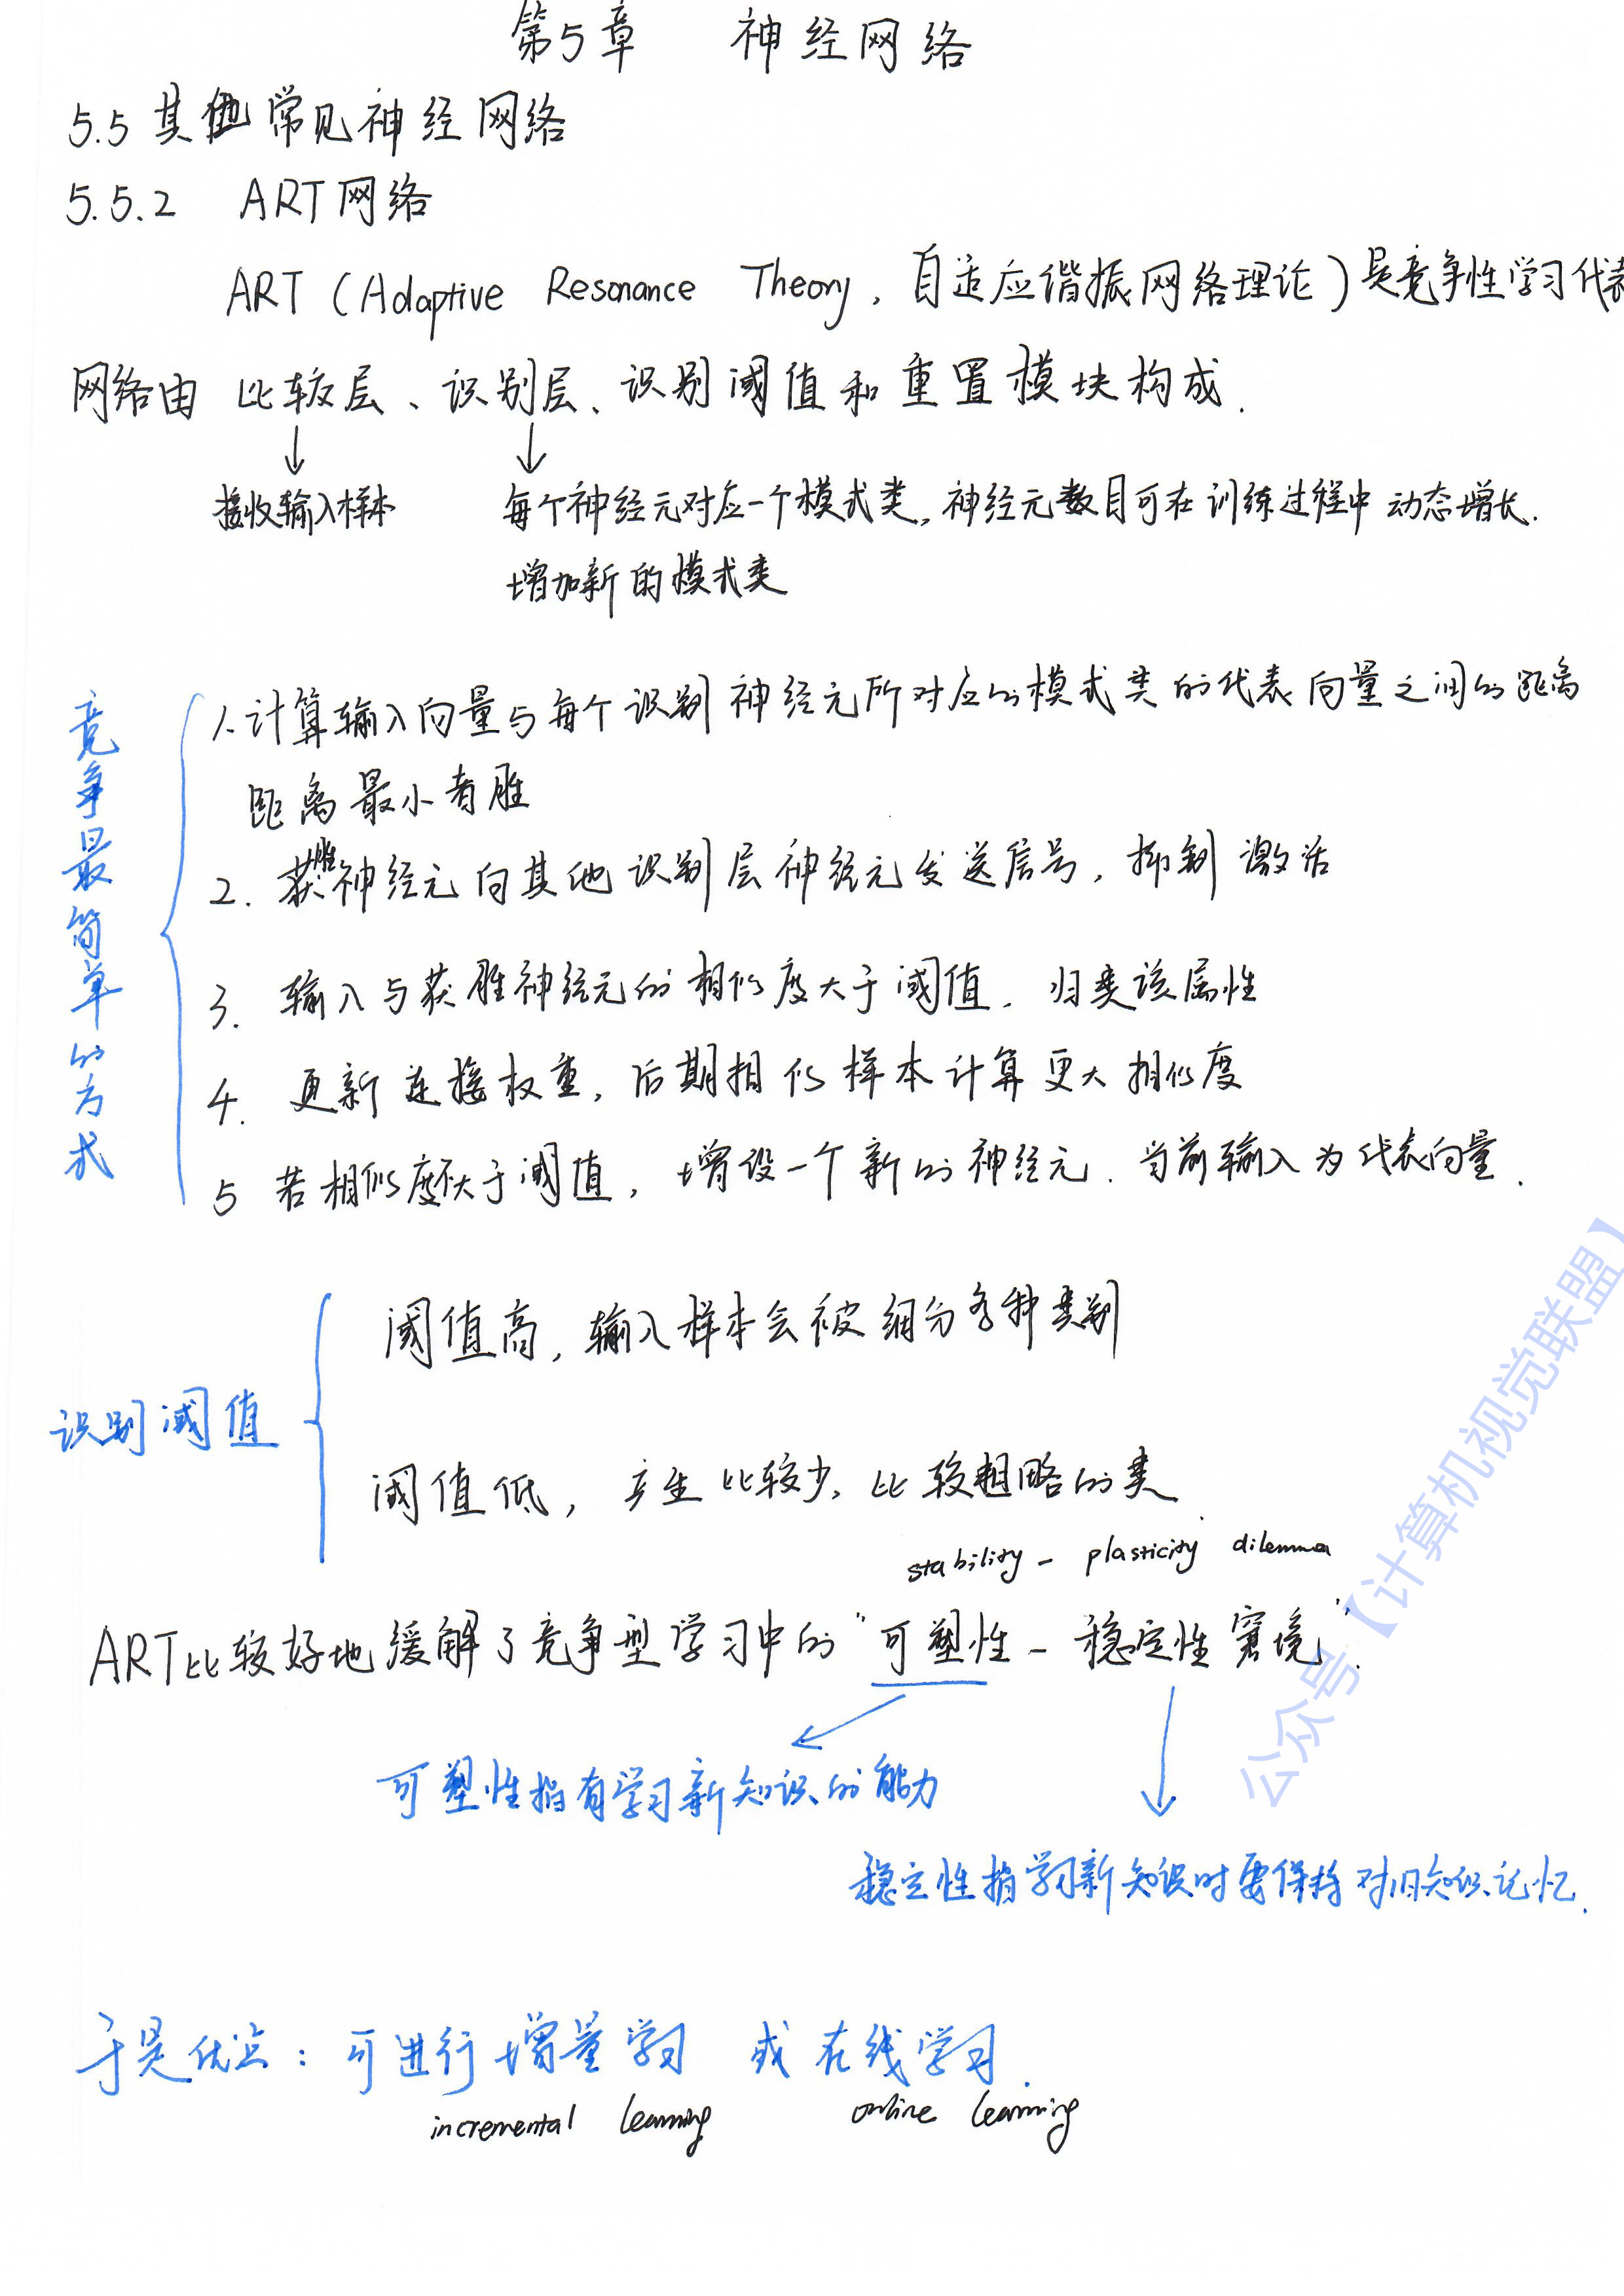 第5章 神经网络
5.5 其他常见神经网络
5.5.2 ART网络
ART (Adaptive Resonance Theory, 自适应谐振网络理论) 是竞争性学习代表
网络由 比较层、识别层、识别阈值和重置模块构成.
接收输入样本 每个神经元对应一个模式类, 神经元数目可在训练过程中动态增长.
增加新的模式类
竞争最简单的方式
1. 计算输入向量与每个识别神经元所对应的模式类的代表向量之间的距离
距离最小者胜
2. 获胜神经元向其他识别层神经元发送信号, 抑制激活
3. 输入与获胜神经元的相似度大于阈值. 归类该属性
4. 更新连接权重, 后期相似样本计算更大相似度
5 若相似度不大于阈值, 增设一个新的神经元. 当前输入为代表向量.
识别阈值
阈值高, 输入样本会被细分各种类别
阈值低, 产生比较少、比较粗略的类.
stability - plasticity dilemma
ART比较好地缓解了竞争型学习中的“可塑性-稳定性窘境”.
可塑性指有学习新知识的能力
稳定性指学习新知识时要保持对旧知识记忆.
于是优点: 可进行增量学习 或在线学习.
incremental learning online learning
公众号【计算机视觉联盟】